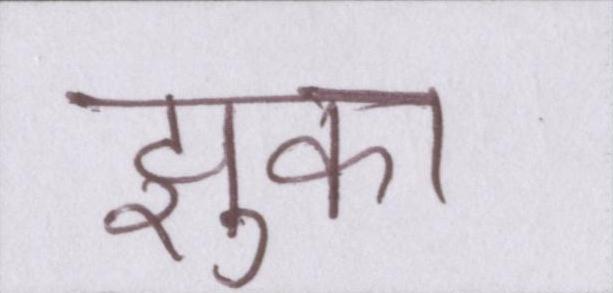 झुका